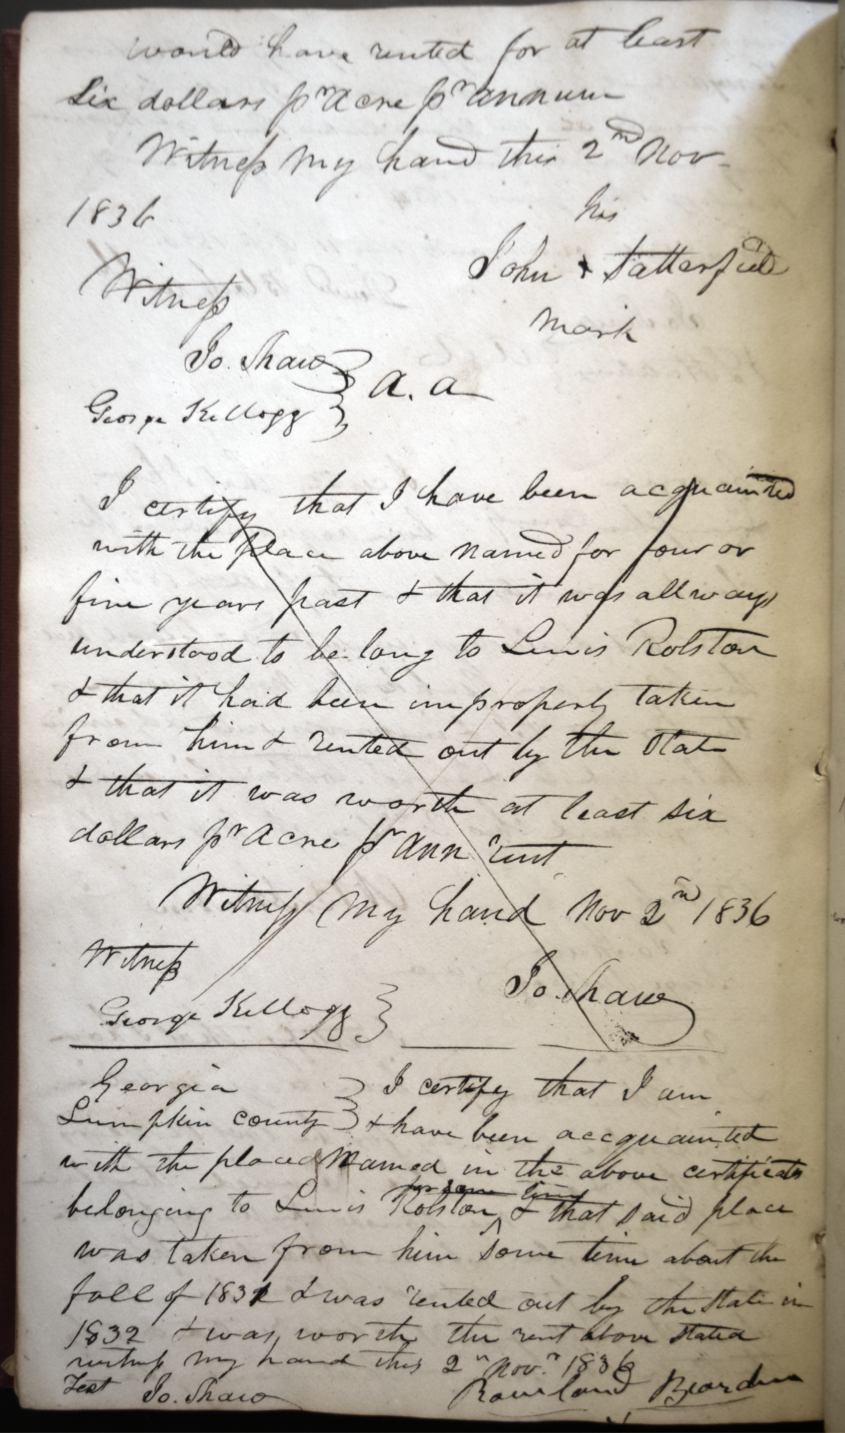 would have rented for at least
Six dollars pr Acre pr annum
Witness my hand this 2nd Nov
1836
his
John + Satterfield
mark
Witness
Jo. Shaw
George Kellogg } a. a
I certify that I have been acquainted
with the place above named for four or
five years past & that it was allways
understood to be long to Lewis Rolston
& that it had been improperly taken
from him & rented out by the State
& that it was worth at least six
dollars pr Acre pr Ann rent
Witness my hand Nov 2nd 1836
Witness
George Kellogg } Jo. Shaw
Georgia } I certify that I am
Lumpkin county } & have been accquainted
with the place named in the above certificate
for some time
belonging to Lewis Rolston ^ & that said place
was taken from him some time about the
fall of 1831 & was rented out by the State in
1832 & was worth the rent above stated
witness my hand this 2nd Nov. 1836
Test Jo. Shaw Rowland Bearden